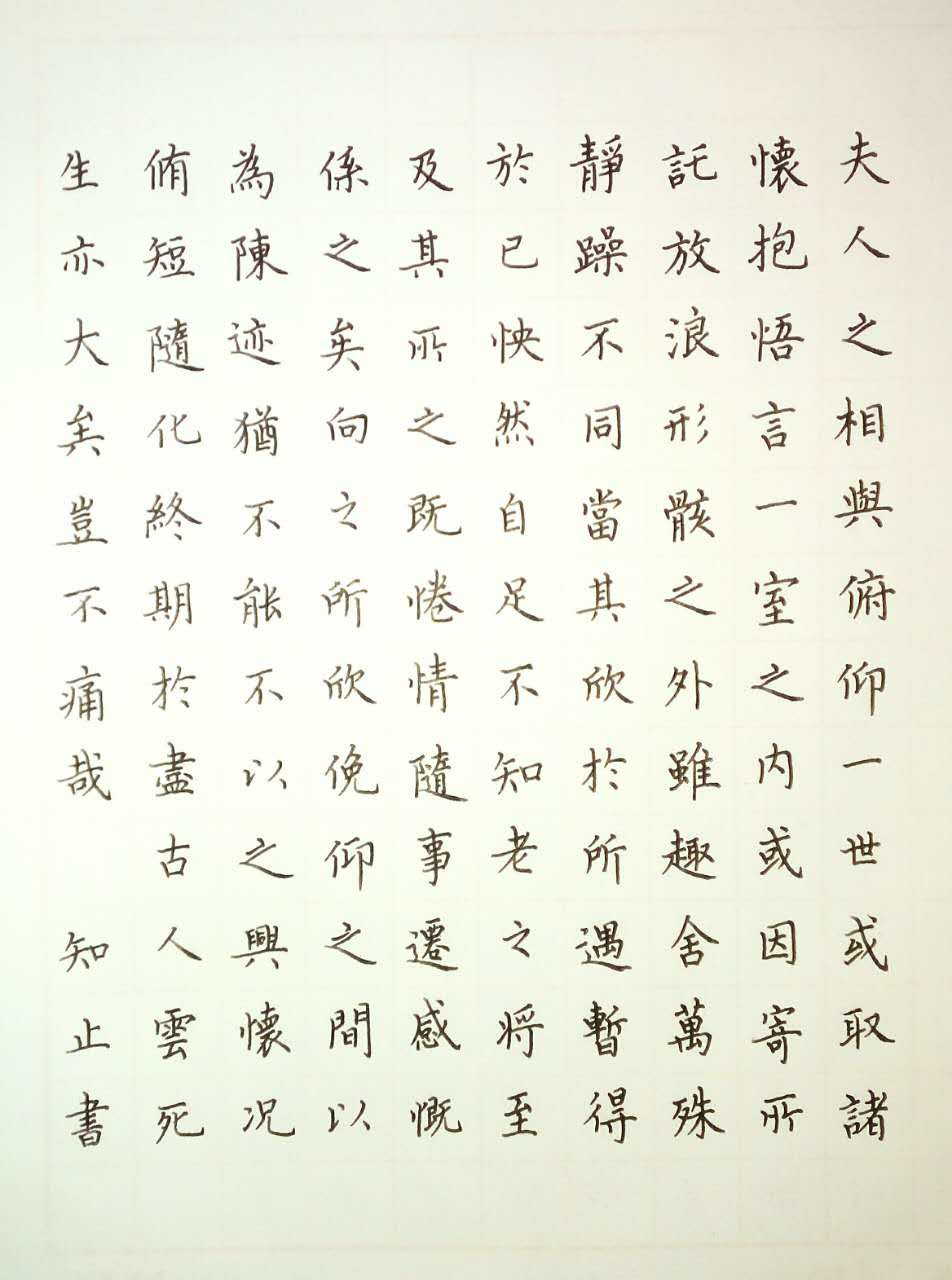 夫人之相與俯仰一世或取諸
懷抱悟言一室之内或因寄所
託放浪形骸之外雖趣舍萬殊
靜躁不同當其欣於所遇暫得
於己怏然自足不知老之将至
及其所之既惓情隨事遷感慨
係之矣向之所欣俛仰之間以
為陳迹猶不能不以之興懷况
脩短隨化終期於盡古人雲死
生亦大矣豈不痛哉 知止書